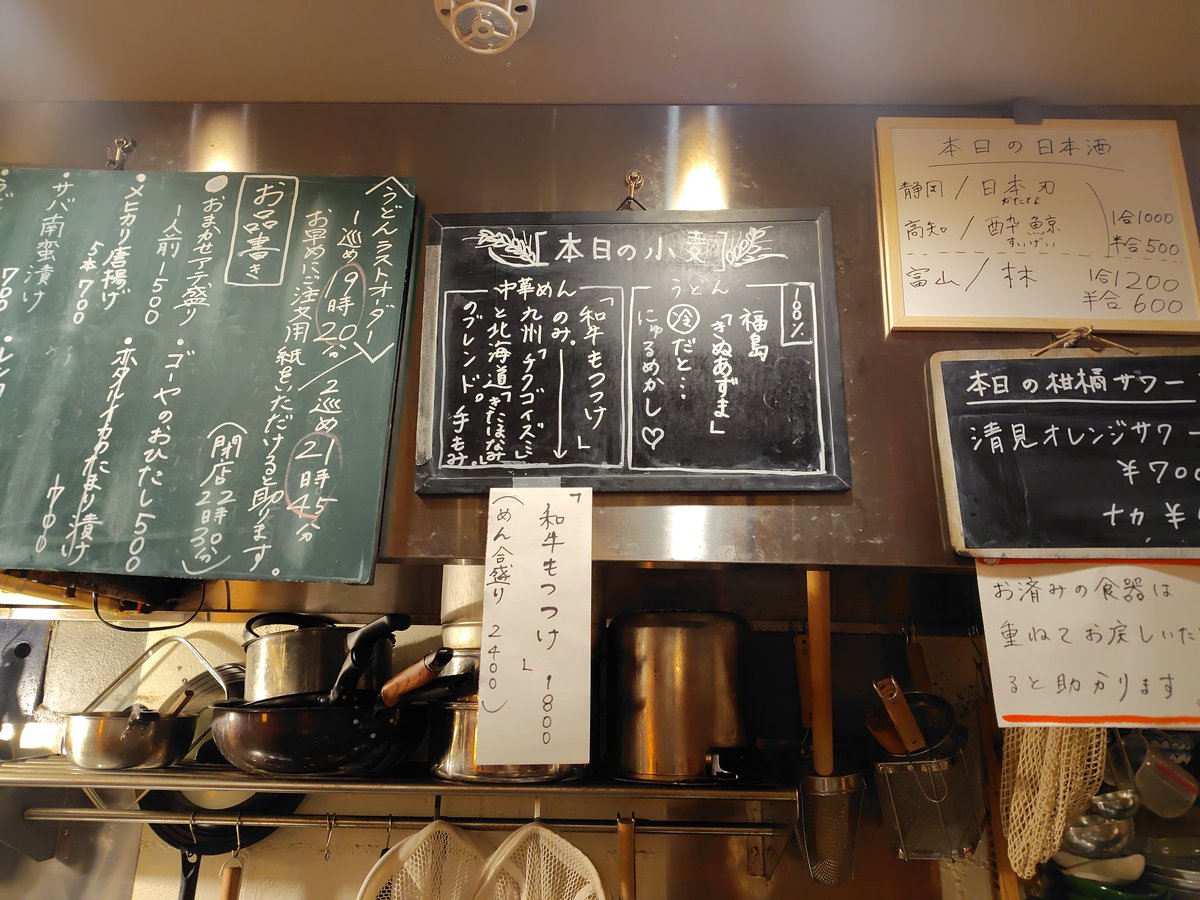 うどんラストオーダー
1巡め9時20分/2巡め21時45分
お早めにご注文用紙をいただけると助かります。
(閉店22時30分)
お品書き
●おまかせアテ盛り
一人前1500
・ゴーヤのおひたし500
・メヒカリ唐揚げ
5本700
・ホタルイカのたまり漬け
700
・サバ南蛮漬け
700
本日の小麦
うどん
100%
福島
「きぬあずま」
冷だと…
にゅるめかし♡
中華めん
「和牛もつつけ」
のみ。
九州「チクゴイズミ」
と北海道「きたほなみ」
のブレンド。手もみ。
「和牛もつつけ」1800
(めん合盛り2400)
本日の日本酒
静岡/日本刃
かたな
高知/酔鯨
すいげい
1合1000
半合500
富山/林
1合1200
半合600
本日の柑橘サワー
清見オレンジサワー
¥700
ナカ¥
お済みの食器は
重ねてお戻しいた
ると助かります